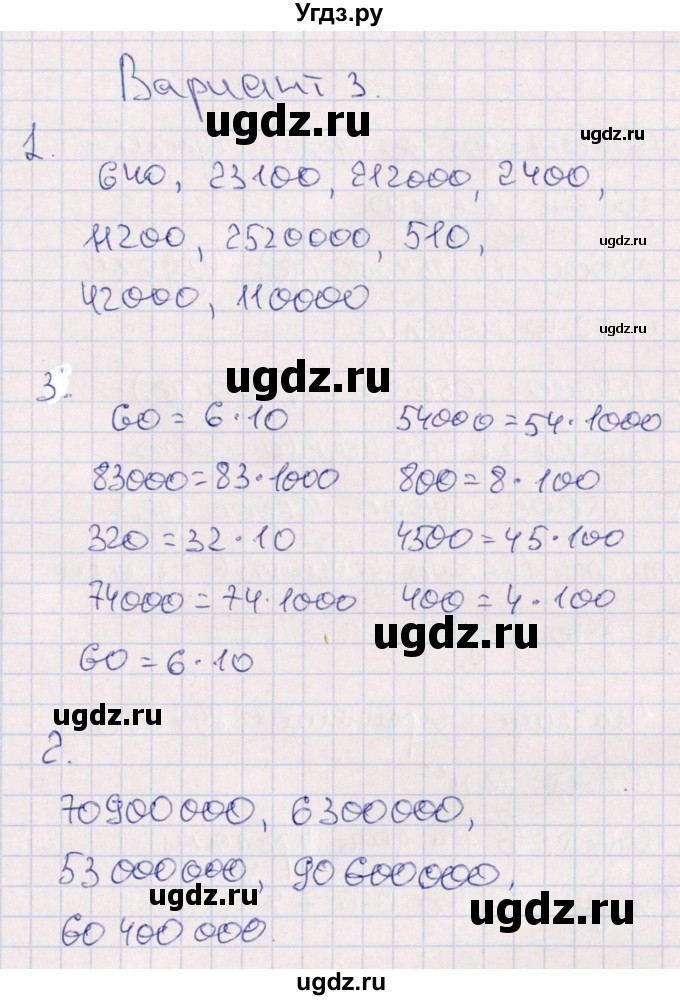 Угдз.ру
Вариант 3.
ugdz.ru
ugdz.ru
1.
640, 23100, 212000, 2400,
11200, 2520000, 510,
ugdz.ru
42000, 110000
ugdz.ru
ugdz.ru
3.
60 = 6·10 54000 = 54·1000
83000 = 83·1000 800 = 8·100
320 = 32·10 4500 = 45·100
74000 = 74·1000 400 = 4·100
ugdz.ru
60 = 6·10
ugdz.ru
2.
70900000, 6300000,
53000000, 90600000,
ugdz.ru
ugdz.ru
60 400 000.
ugdz.ru